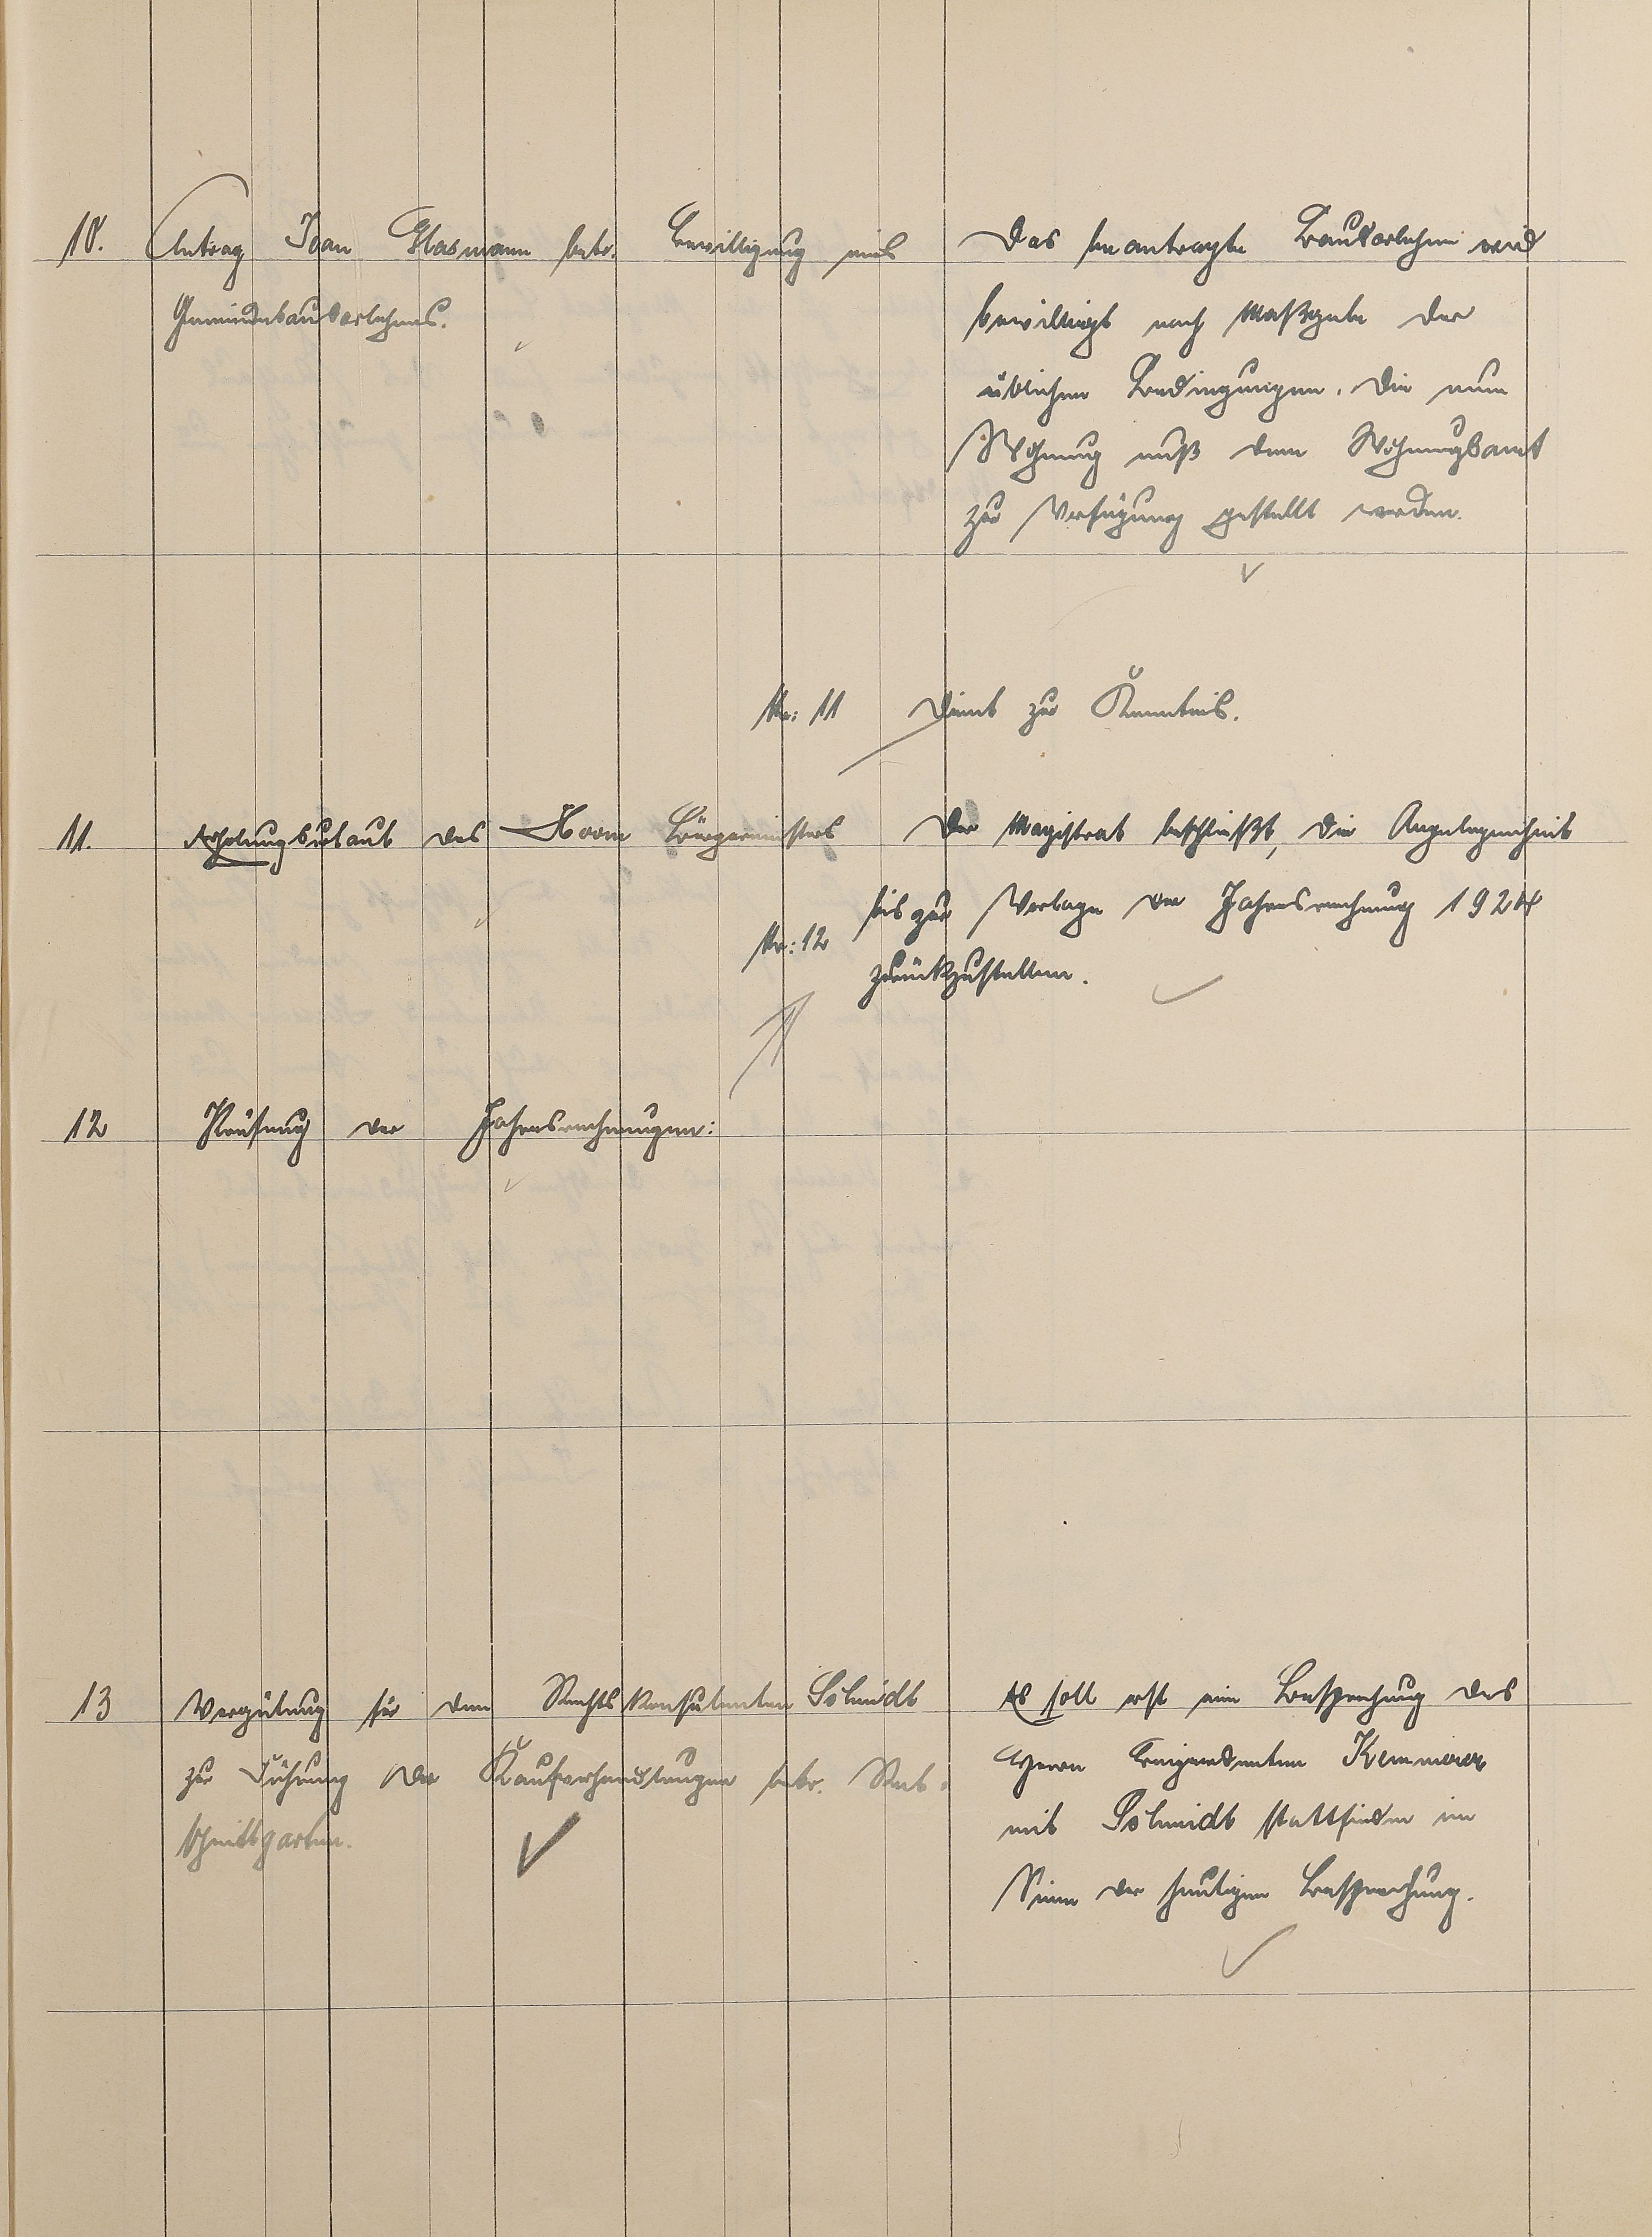 10. Antrag Joan Glasmann betr. Bewilligung eines
Gemeindebaudarlehens.
Das beantragte Baudarlehen wird
bewilligt nach Maßgabe der
üblichen Bedingungen. Die neue
Wohnung muß dem Wohnungsamt
zur Verfügung gestellt werden.
Nr: 11 Dient zur Kenntnis.
11. Erholungsurlaub des Herrn Bürgermeisters
Nr: 12 Der Magistrat beschließt, die Angelegenheit
bis zur Vorlage der Jahresrechnung 1924
zurückzustellen.
12 Prüfung der Jahresrechnungen:
13 Vergütung für den Rechtskonsulenten Schmidt
zur Führung der Kaufverhandlungen betr. Reb-
schnittgarten.
Es soll erst eine Besprechung des
Herrn Beigeordneten Kemmerer
mit Schmidt stattfinden im
Sinne der heutigen Besprechung.